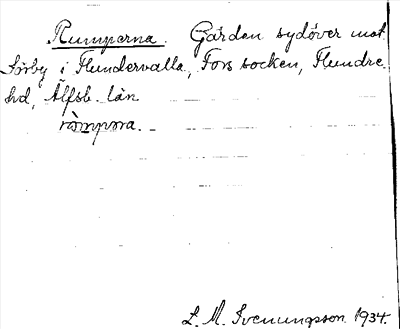 Rumperna. Gärdan sydöver mot
Sörby i Flundervalla, Fors socken, Flundre
hd, Älfsb. län
ròmp∙ɴa.
S. M. Svenungsson 1934.